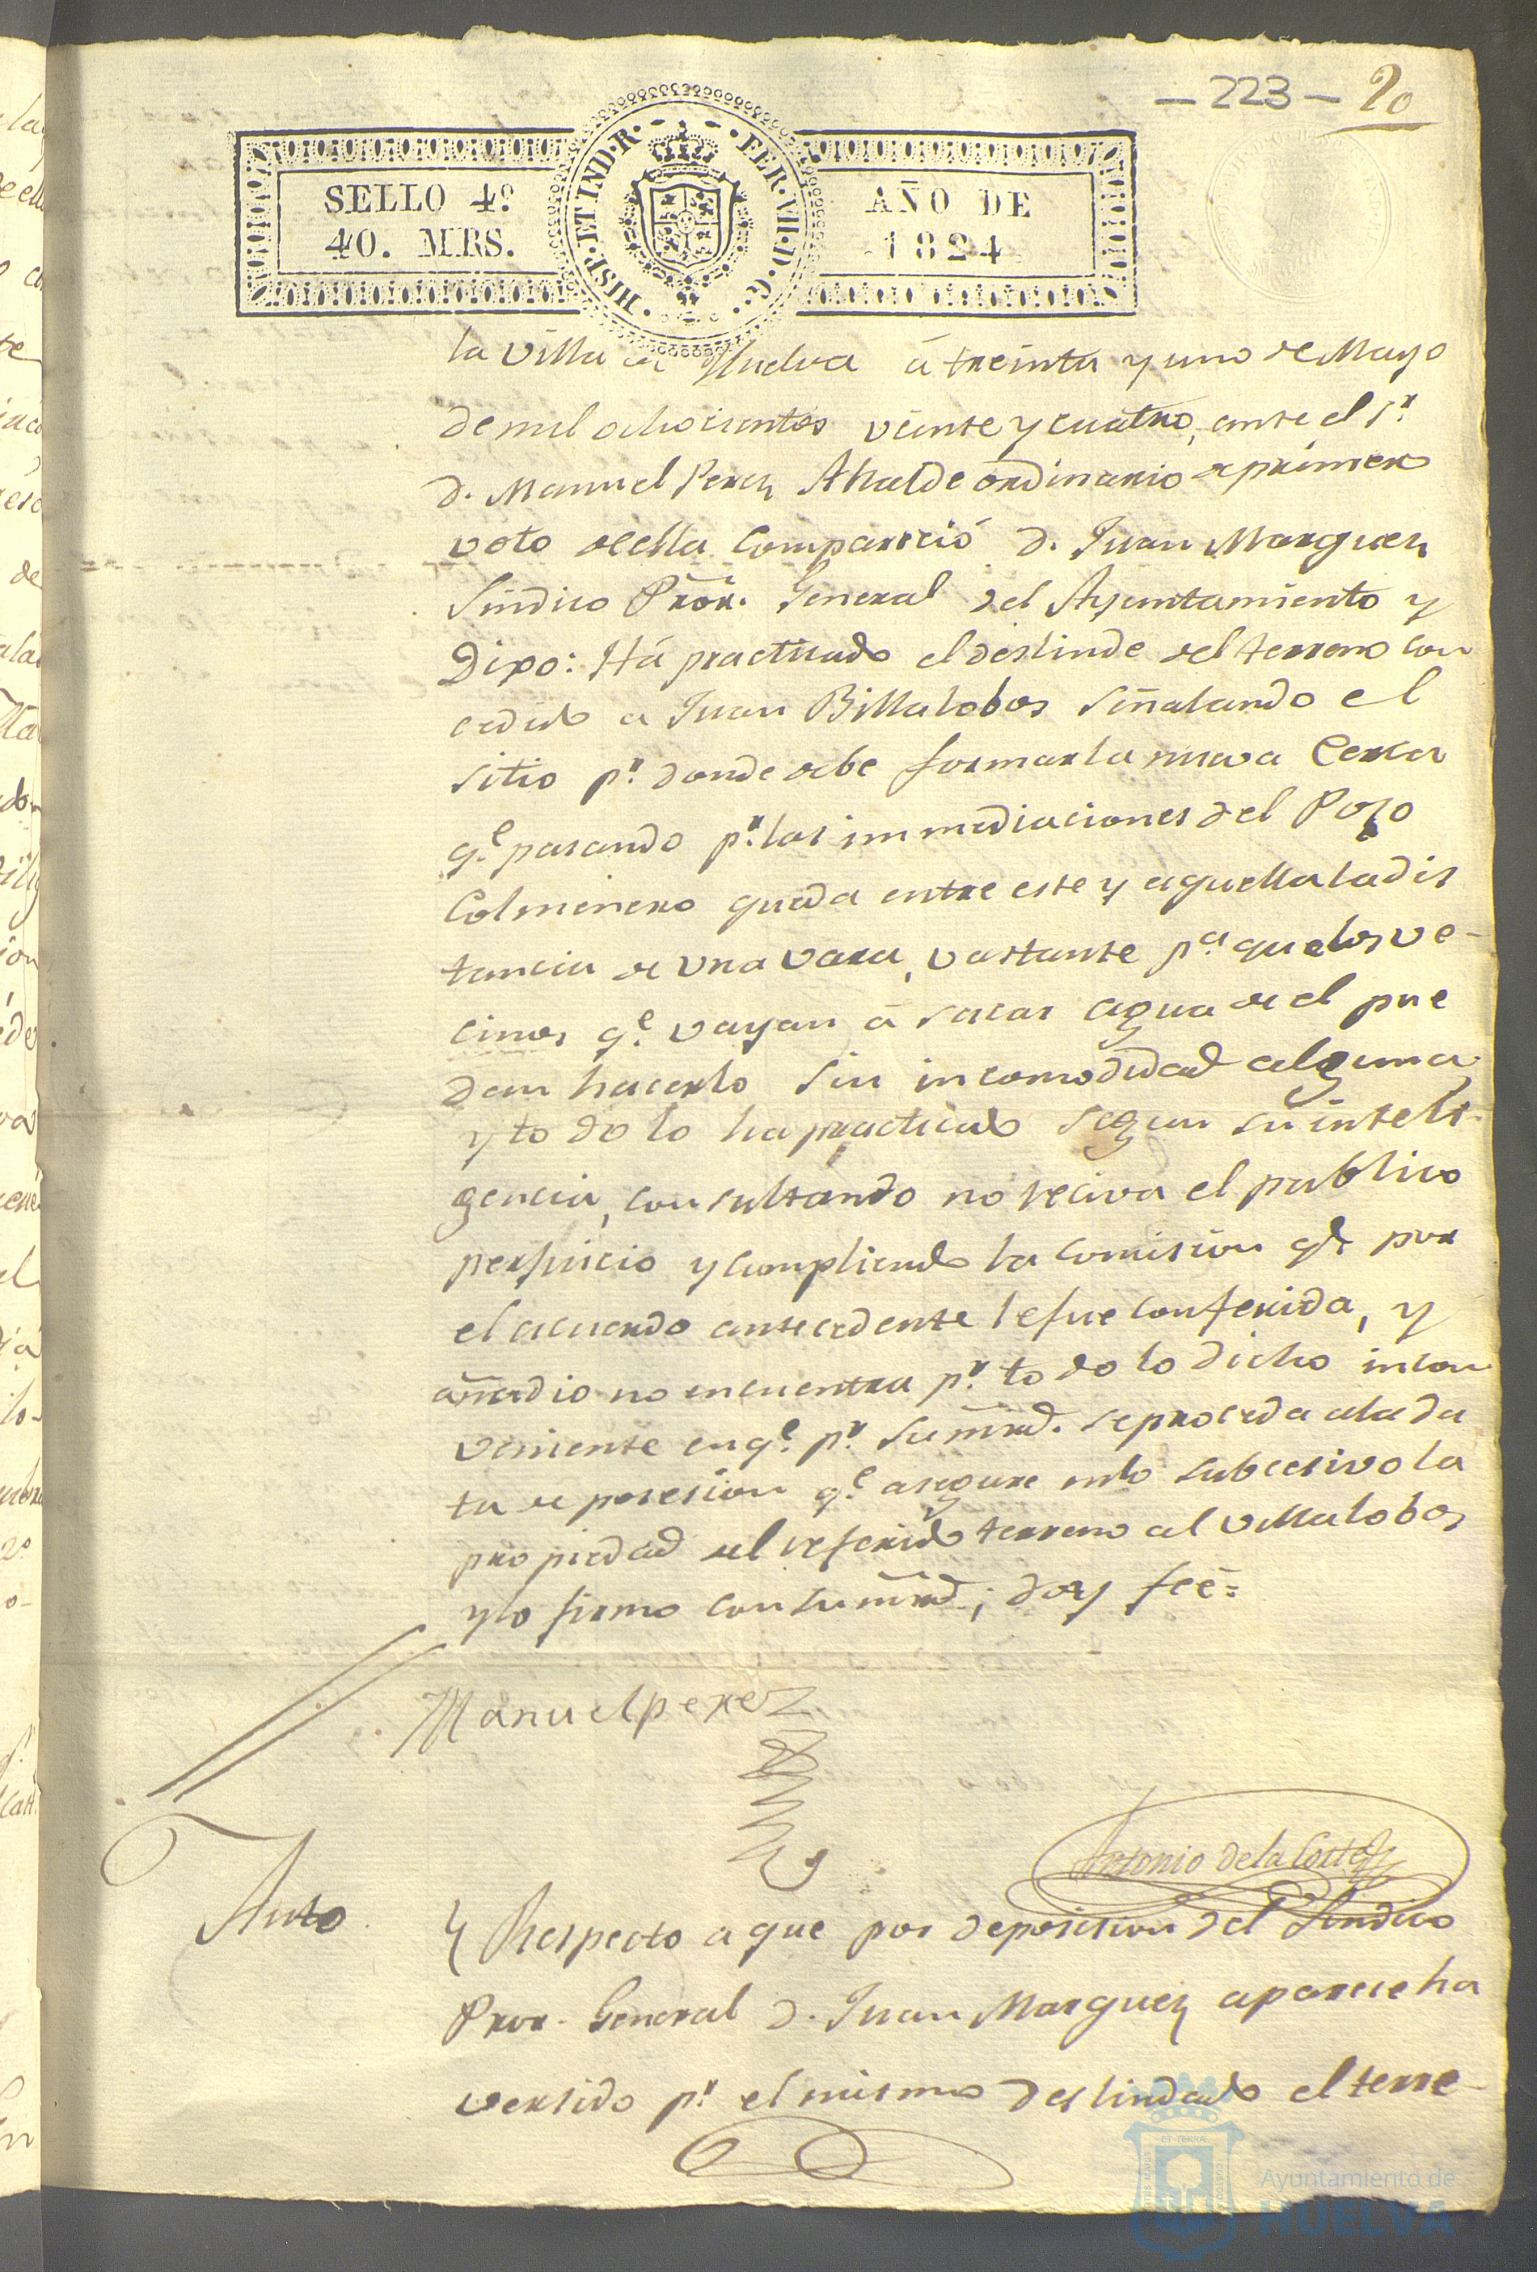 - 223 - 20
SELLO 4º
40. MRS.
HISP. ET IND. R. FER. VII. D. G.
AÑO DE
1824
la villa de Huelva á treinta y uno de Mayo
de mil ochocientos veinte y cuatro, ante el Sr.
D. Manuel Perez Alcalde ordinario de primer
voto de ella compareció D. Juan Marquez
Sindico Pror. General del Ayuntamiento y
Dixo: Há practicado el deslinde del terreno con
cedido a Juan Billalobos señalando el
sitio pr. donde debe formar la nueva Cerca
qe. pasando pr. las immediaciones del Pozo
Colmenero queda entre este y aquella la dis
tancia de una vara, vastante pa. que los ve-
cinos qe. vayan á sacar agua de el pue
dan hacerlo sin incomodidad alguna
y todo lo ha practicado segun su inteli-
gencia, consultando no reciva el publico
perjuicio y cumpliendo la comision qe. por
el acuerdo antecedente le fue conferida, y
añadio no encuentra pr. todo lo dicho incon
veniente en qe. pr. su mrd. se proceda a la da
ta de posesion qe. asegure en lo subcesivo la
propiedad del referido terreno al Villalobos
y lo firmo con su mrd; doy feé=
Manuel perez
Antonio de la Corte
Auto
Y Respecto a que por deposicion del Sindico
Pror. General D. Juan Marquez aparece ha
versido pr. el mismo deslindado el terre-
ET TERRA
Ayuntamiento de
HUELVA